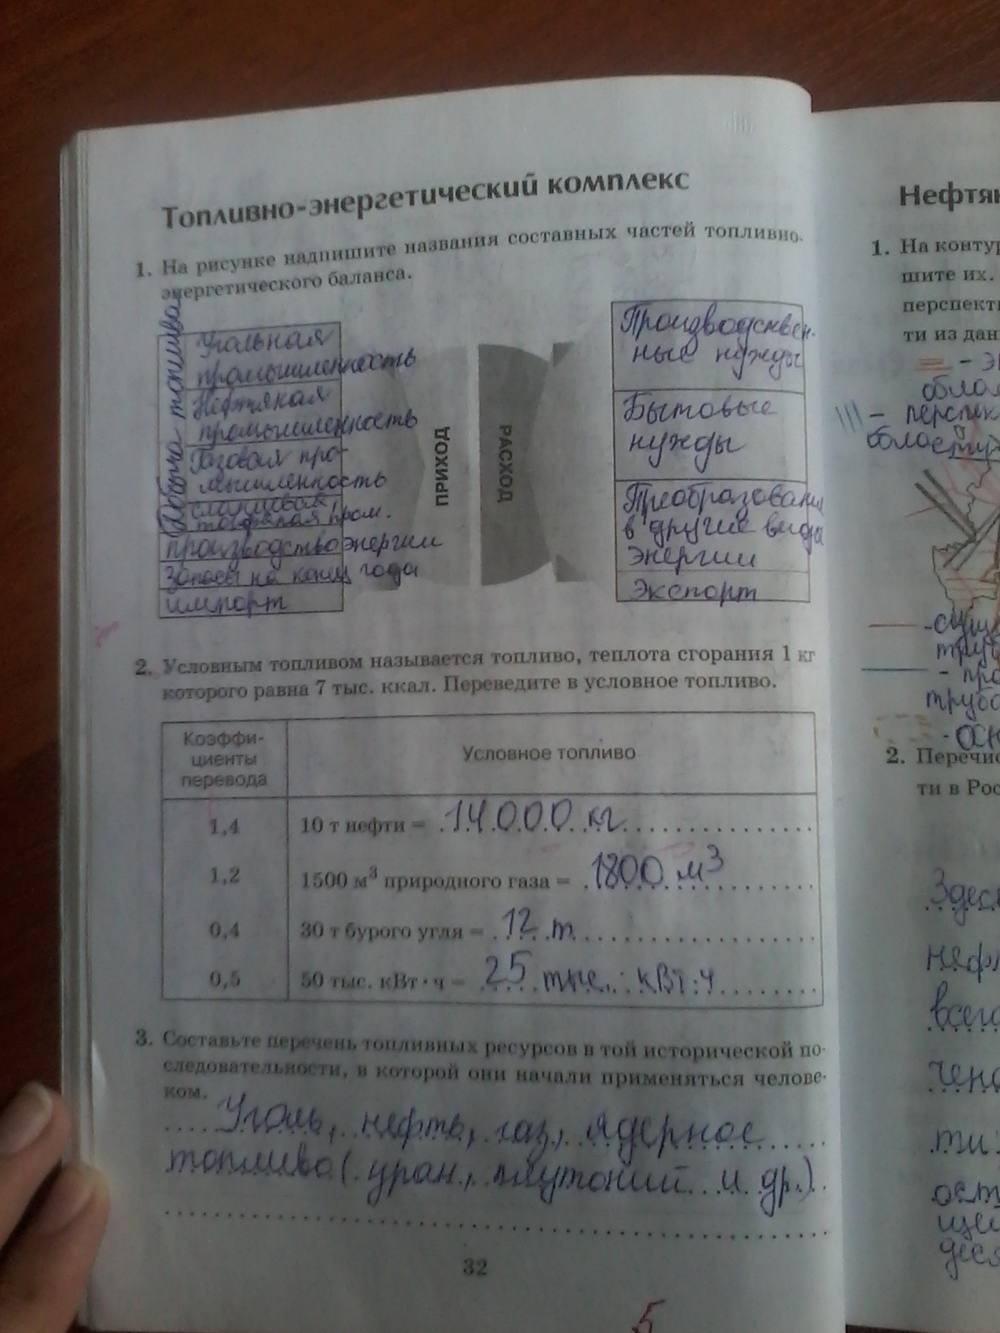 Топливно-энергетический комплекс
1. На рисунке надпишите названия составных частей топливно-
энергетического баланса.
Добыча топлива
Угольная
промышленность
Нефтяная
промышленность
Газовая про-
мышленность
сланцевая
торфяная пром.
производство энергии
Запасы на конец года
импорт
ПРИХОД
РАСХОД
Производствен-
ные нужды
Бытовые
нужды
Преобразование
в другие виды
энергии
Экспорт
2. Условным топливом называется топливо, теплота сгорания 1 кг
которого равна 7 тыс. ккал. Переведите в условное топливо.
Коэффи-
циенты
перевода
Условное топливо
1,4 10 т нефти = 14000 кг
1,2 1500 м³ природного газа = 1800 м³
0,4 30 т бурого угля = 12 т
0,5 50 тыс. кВт·ч = 25 тыс. кВт·ч
3. Составьте перечень топливных ресурсов в той исторической по-
следовательности, в которой они начали применяться челове-
ком.
Уголь, нефть, газ, ядерное
топливо (уран, плутоний и др.)
32
5
Нефтян
1. На контур
шите их.
перспекти
ти из дан
обла
- перспек
област
тру
- про
трубо
- осн
2. Перечис
ти в Рос
Здес
неф
всего
чен
ти
ост